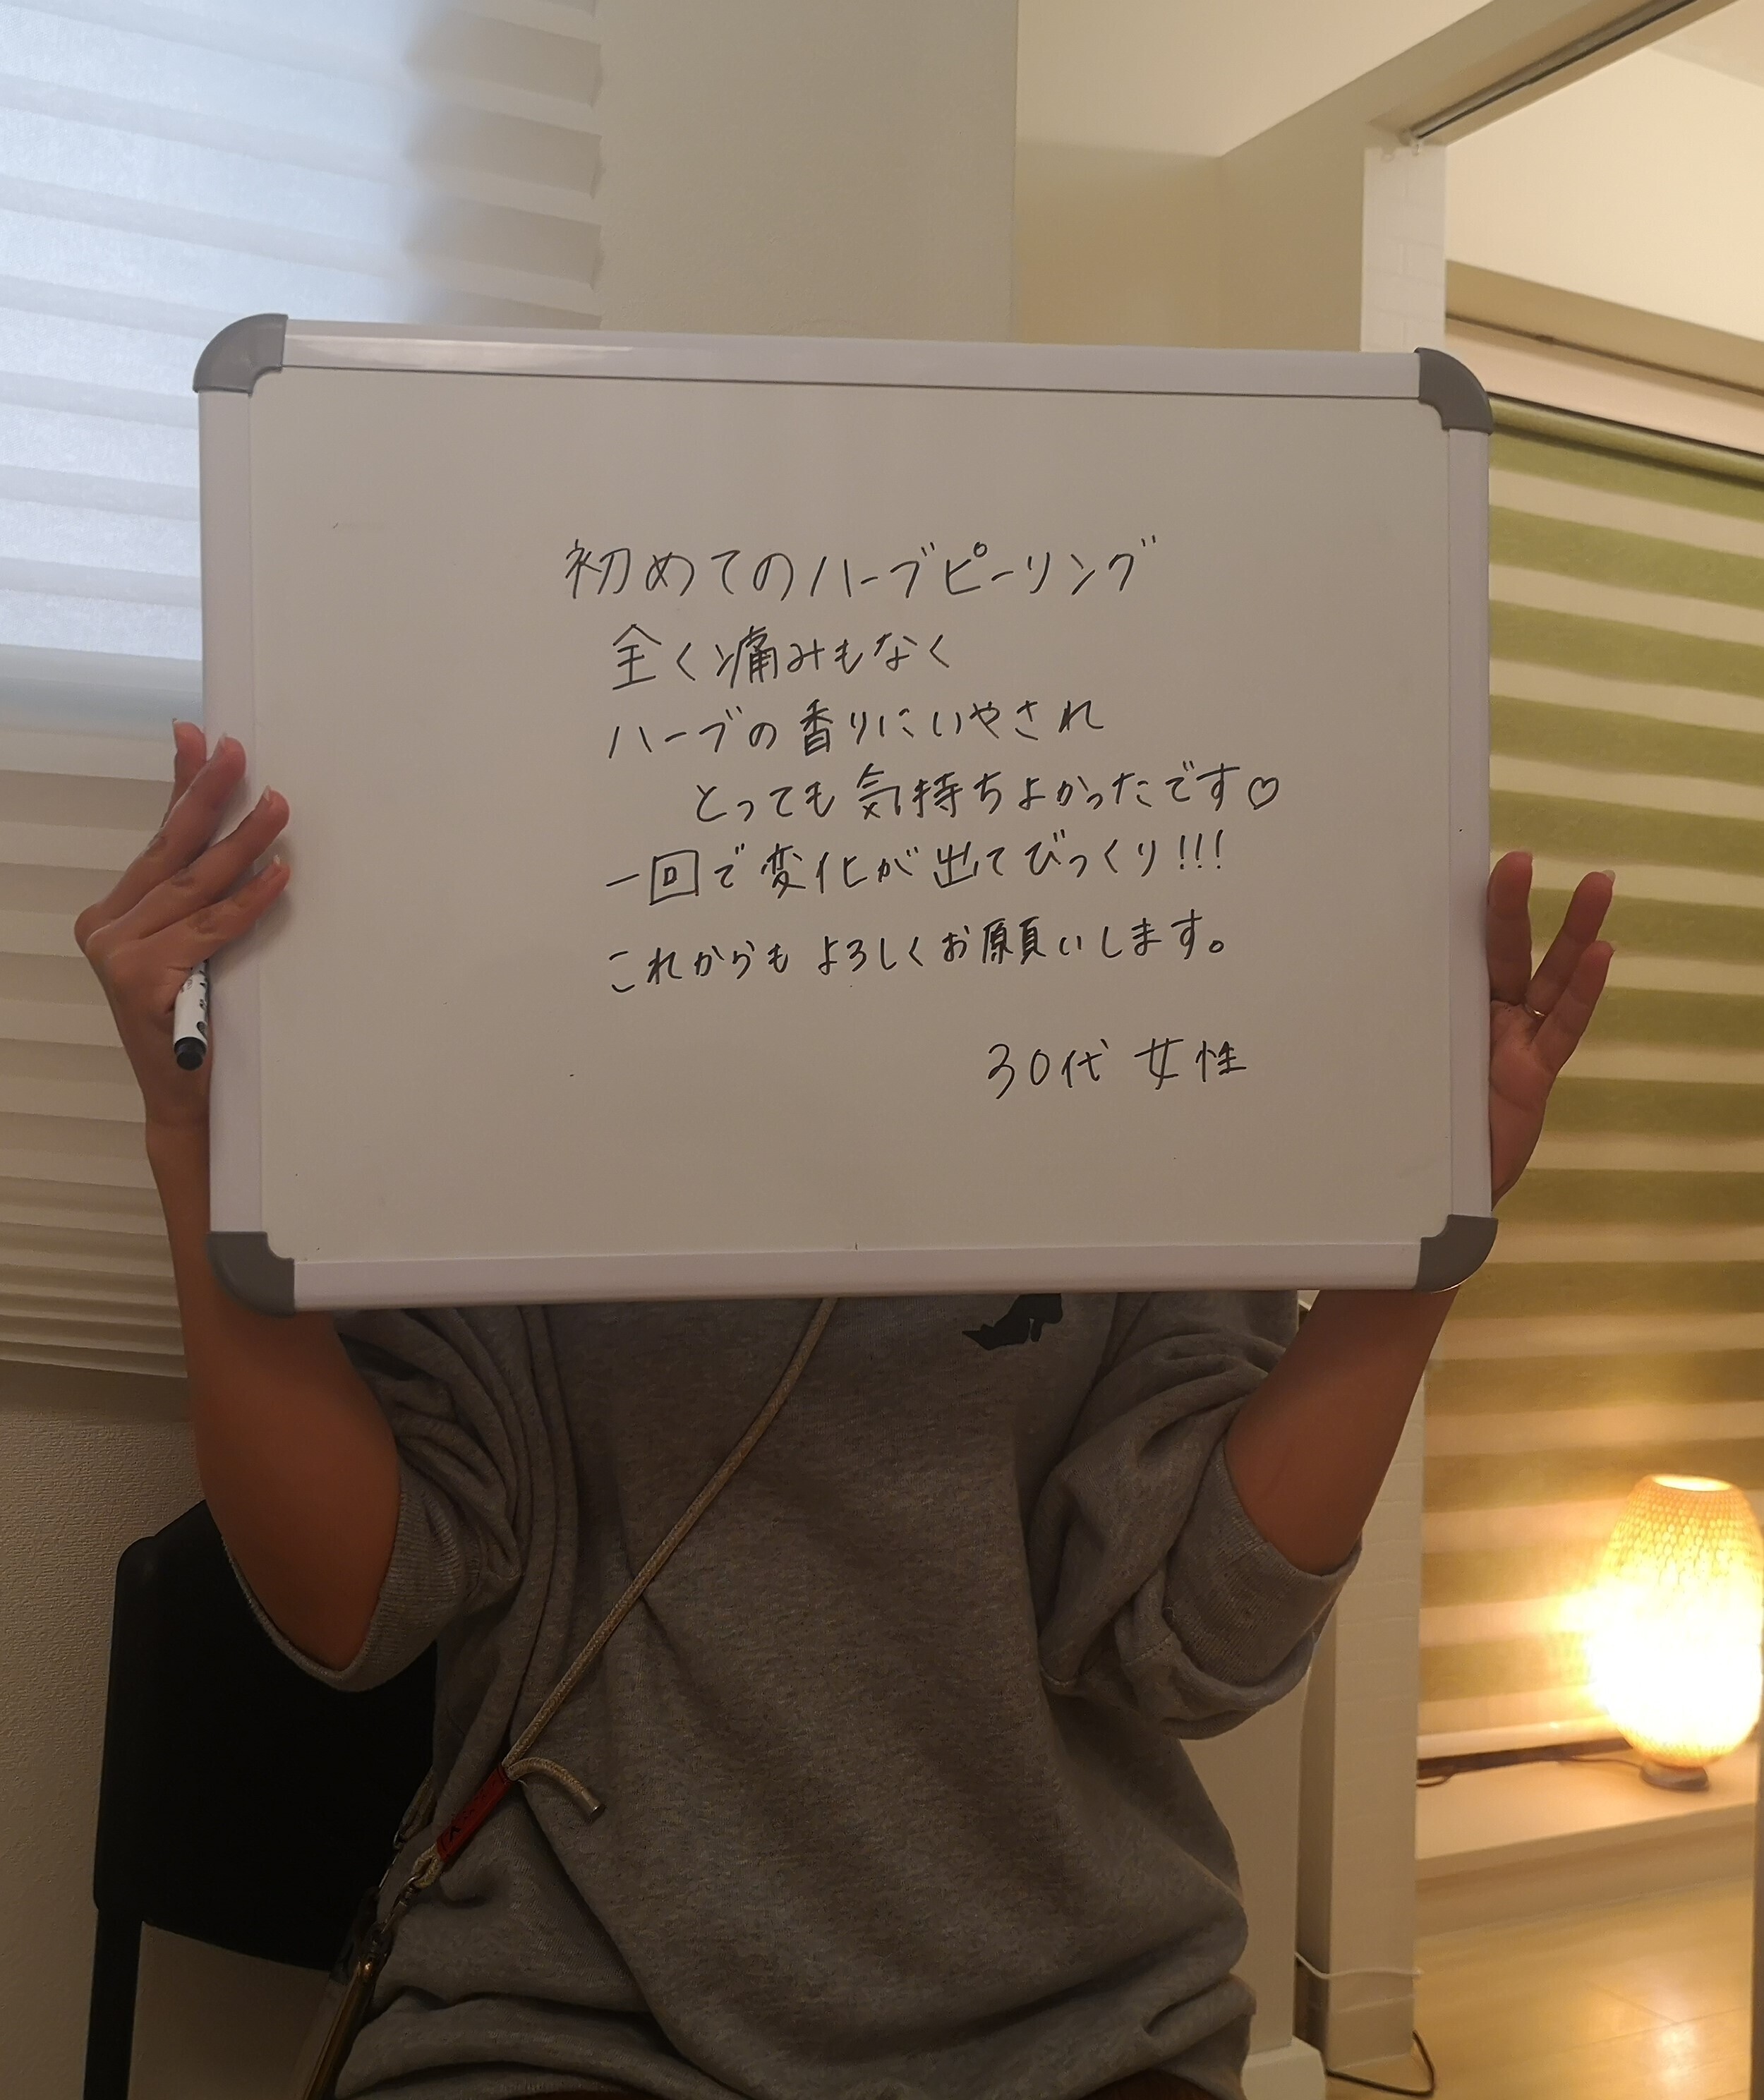 初めてのハーブピーリング
全く痛みもなく
ハーブの香りにいやされ
とっても気持ちよかったです♡
一回で変化が出てびっくり!!!
これからもよろしくお願いします。
30代 女性